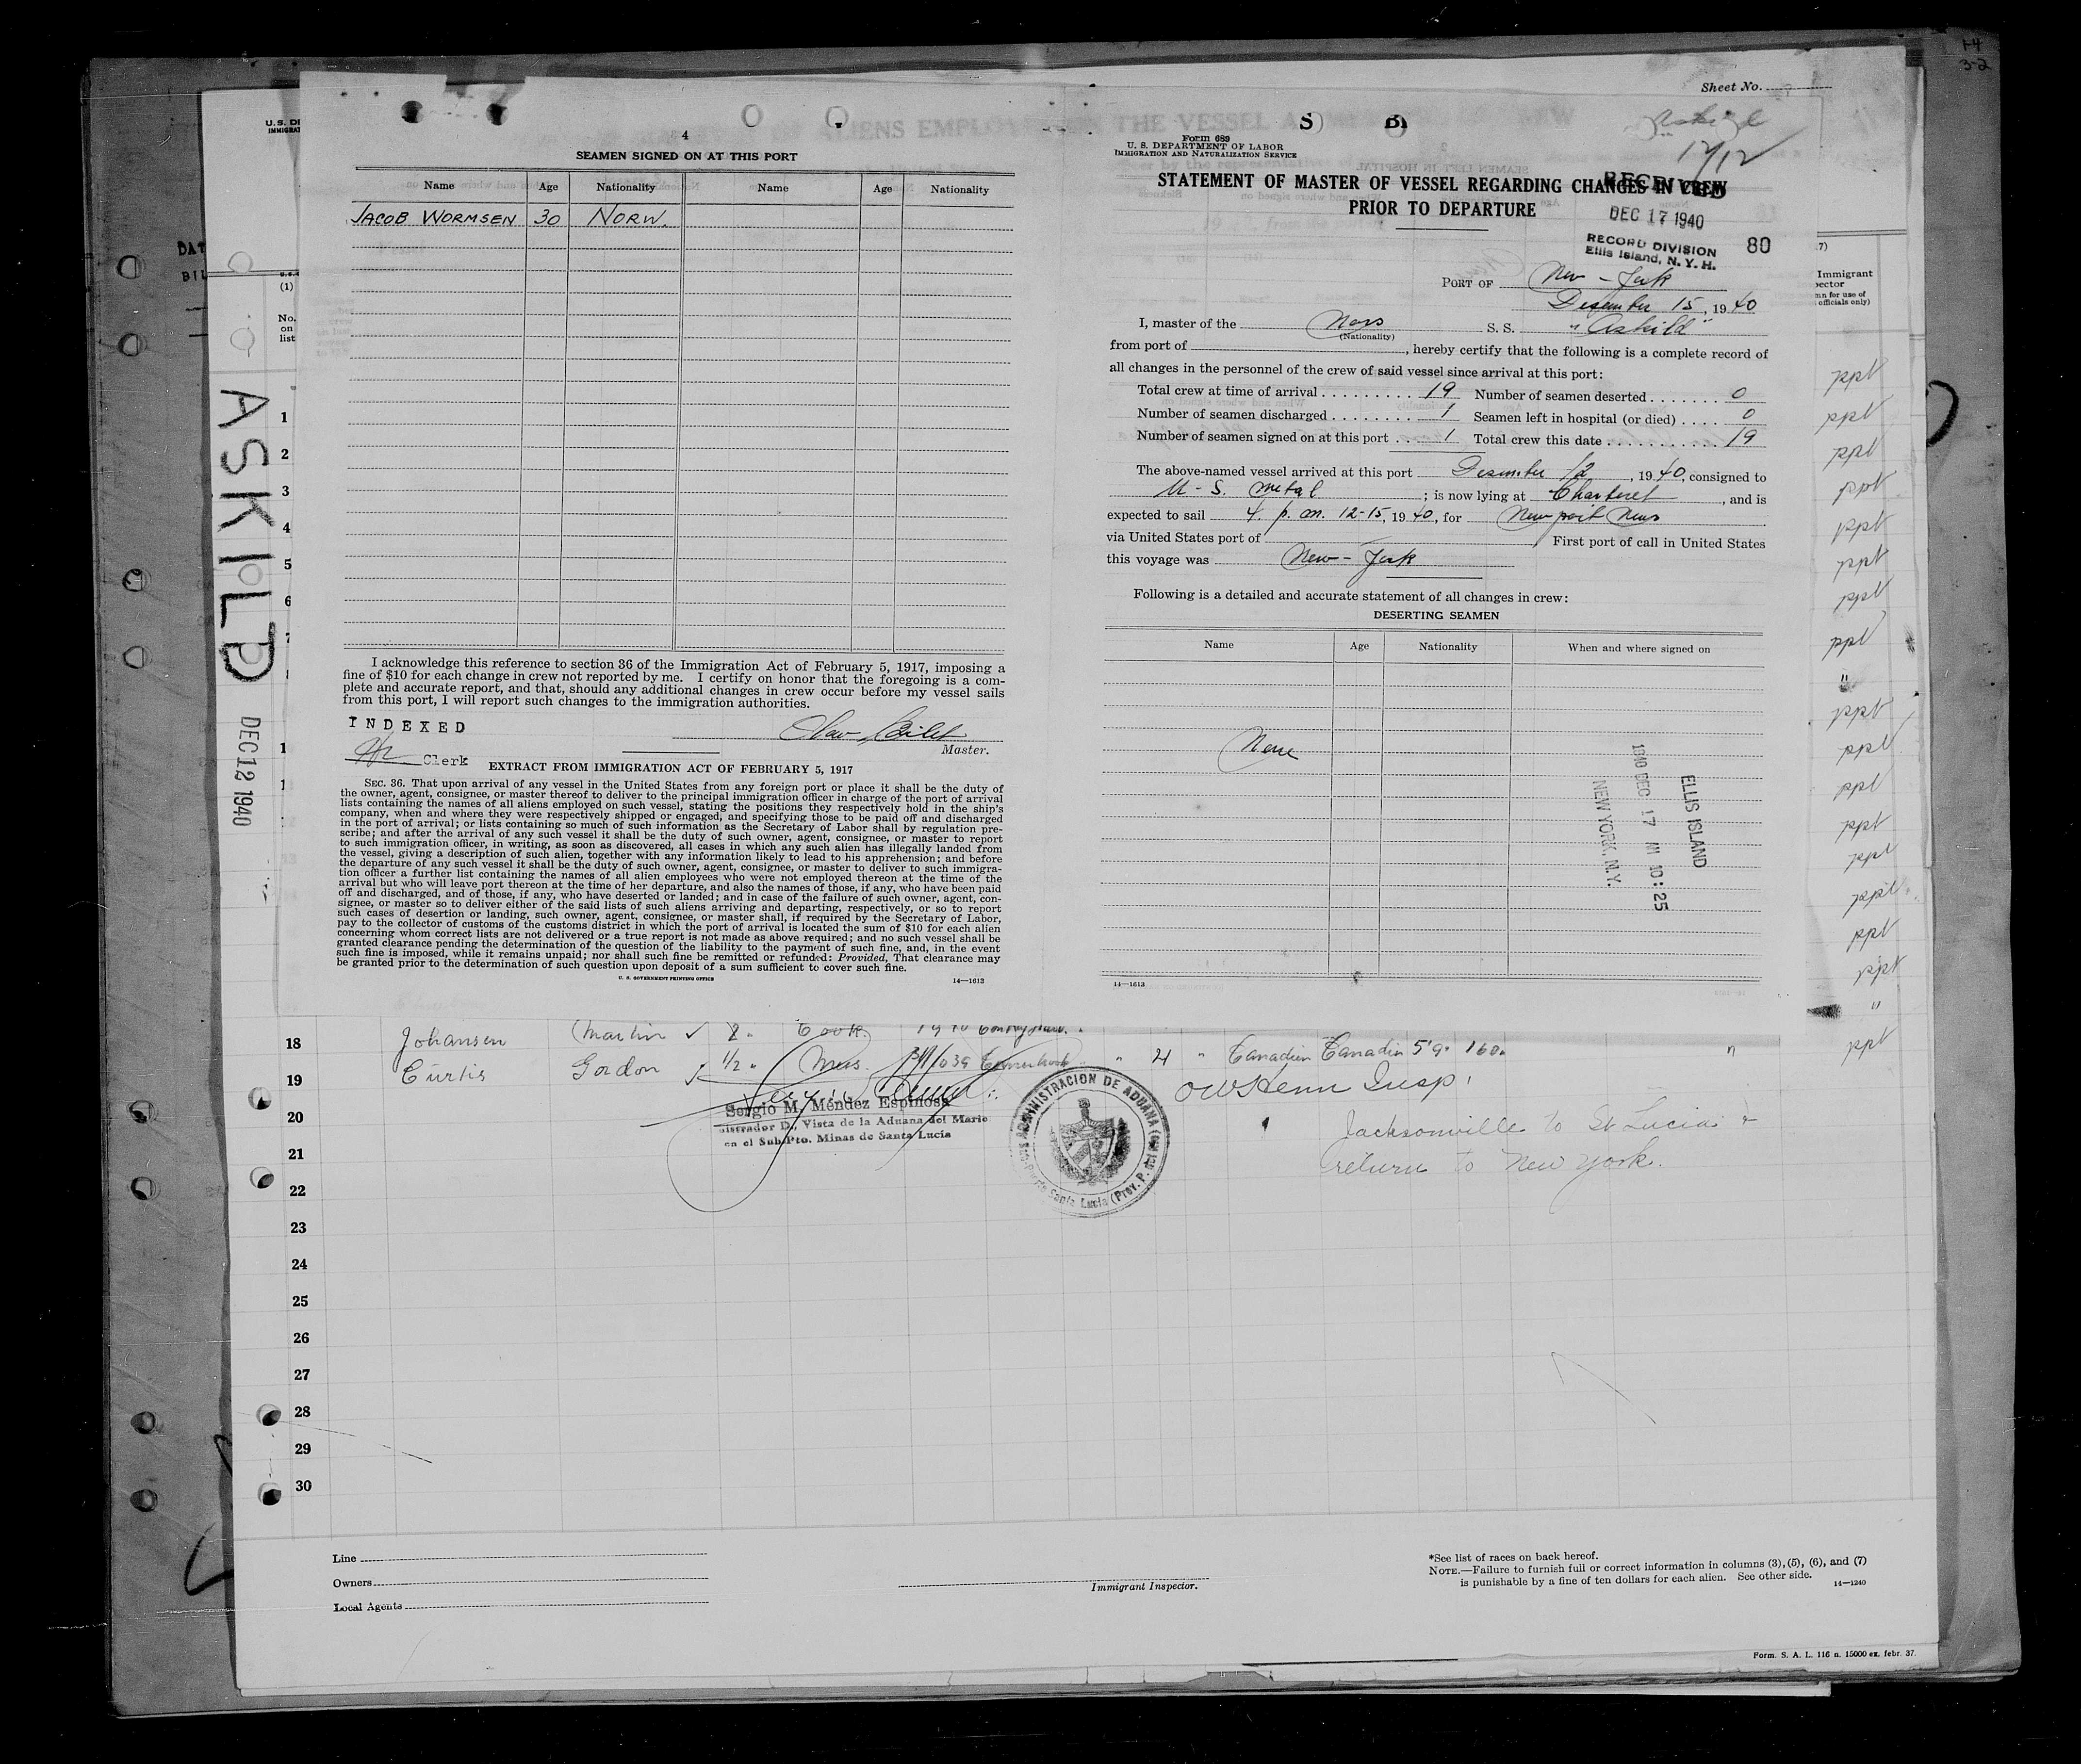 14
3-2
Sheet No.
U. S. DE
IMMIGRAT
4
SEAMEN SIGNED ON AT THIS PORT
Name Age Nationality Name Age Nationality
JACOB WORMSEN 30 NORW.
I acknowledge this reference to section 36 of the Immigration Act of February 5, 1917, imposing a
fine of $10 for each change in crew not reported by me. I certify on honor that the foregoing is a com-
plete and accurate report, and that, should any additional changes in crew occur before my vessel sails
from this port, I will report such changes to the immigration authorities.
INDEXED
Clerk
Master.
EXTRACT FROM IMMIGRATION ACT OF FEBRUARY 5, 1917
SEC. 36. That upon arrival of any vessel in the United States from any foreign port or place it shall be the duty of
the owner, agent, consignee, or master thereof to deliver to the principal immigration officer in charge of the port of arrival
lists containing the names of all aliens employed on such vessel, stating the positions they respectively hold in the ship's
company, when and where they were respectively shipped or engaged, and specifying those to be paid off and discharged
in the port of arrival; or lists containing so much of such information as the Secretary of Labor shall by regulation pre-
scribe; and after the arrival of any such vessel it shall be the duty of such owner, agent, consignee, or master to report
to such immigration officer, in writing, as soon as discovered, all cases in which any such alien has illegally landed from
the vessel, giving a description of such alien, together with any information likely to lead to his apprehension; and before
the departure of any such vessel it shall be the duty of such owner, agent, consignee, or master to deliver to such immigra-
tion officer a further list containing the names of all alien employees who were not employed thereon at the time of the
arrival but who will leave port thereon at the time of her departure, and also the names of those, if any, who have been paid
off and discharged, and of those, if any, who have deserted or landed; and in case of the failure of such owner, agent, con-
signee, or master so to deliver either of the said lists of such aliens arriving and departing, respectively, or so to report
such cases of desertion or landing, such owner, agent, consignee, or master shall, if required by the Secretary of Labor,
pay to the collector of customs of the customs district in which the port of arrival is located the sum of $10 for each alien
concerning whom correct lists are not delivered or a true report is not made as above required; and no such vessel shall be
granted clearance pending the determination of the question of the liability to the payment of such fine, and, in the event
such fine is imposed, while it remains unpaid; nor shall such fine be remitted or refunded: Provided, That clearance may
be granted prior to the determination of such question upon deposit of a sum sufficient to cover such fine.
U. S. GOVERNMENT PRINTING OFFICE
14—1613
Askild
12/12
Form 689
U. S. DEPARTMENT OF LABOR
IMMIGRATION AND NATURALIZATION SERVICE
STATEMENT OF MASTER OF VESSEL REGARDING CHANGES IN CREW
PRIOR TO DEPARTURE
RECEIVED
DEC 17 1940
RECORD DIVISION
Ellis Island, N. Y. H.
80
PORT OF New-York
Desember 15, 1940
I, master of the Nors S. S. "Askild"
(Nationality)
from port of , hereby certify that the following is a complete record of
all changes in the personnel of the crew of said vessel since arrival at this port:
Total crew at time of arrival 19 Number of seamen deserted 0
Number of seamen discharged 1 Seamen left in hospital (or died) 0
Number of seamen signed on at this port 1 Total crew this date 19
The above-named vessel arrived at this port Desember 12, 1940, consigned to
U-S. Metal ; is now lying at Charteret , and is
expected to sail 4. p.m. 12-15, 1940, for Newport News
via United States port of . First port of call in United States
this voyage was New-York
Following is a detailed and accurate statement of all changes in crew:
DESERTING SEAMEN
Name Age Nationality When and where signed on
None
ELLIS ISLAND
1940 DEC 17 AM 10:25
NEW YORK, N.Y.
14—1613
ASKILD
DEC 12 1940
(1)
No.
on
list
1
2
3
4
5
6
7
(7)
Immigrant
officials only)
ppt
ppt
ppt
ppt
ppt
ppt
ppt
ppt
"
ppt
ppt
ppt
ppt
ppt
ppt
ppt
ppt
"
ppt
18 Johansen Martin 2. Cook.
19 Curtis Gordon 1/2 " Mess. " 21 " Canadien Canadien 5'9" 160. "
20
21
22
23
24
25
26
27
28
29
30
Sergio M. Méndez Espinosa
nistrador D. Vista de la Aduana del Marie
en el Sub Pto. Minas de Santa Lucía
ADMINISTRACION DE ADUANA
Santa Lucia (Prov. P.
Insp.
Jacksonville to St Lucia &
return to New York.
Line
Owners
Local Agents
Immigrant Inspector.
*See list of races on back hereof.
NOTE.—Failure to furnish full or correct information in columns (3), (5), (6), and (7)
is punishable by a fine of ten dollars for each alien. See other side.
14—1240
Form. S. A. L. 116 n. 15000 ex. febr. 37.